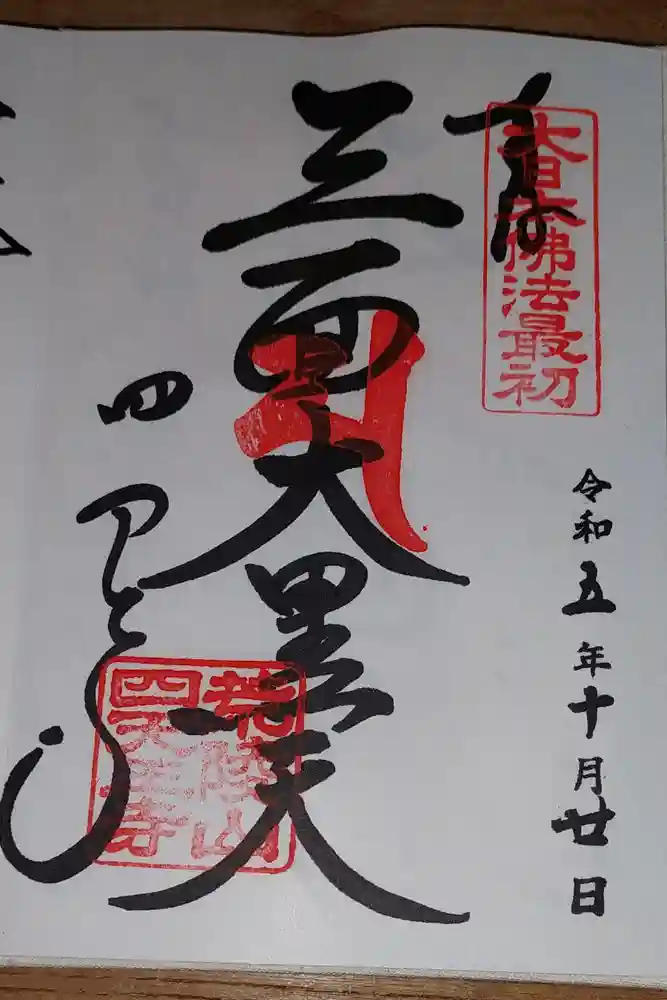 奉拝
大日本佛法最初
令和五年十月廿日
三面大黒天
四天王寺
荒陵山
四天王寺